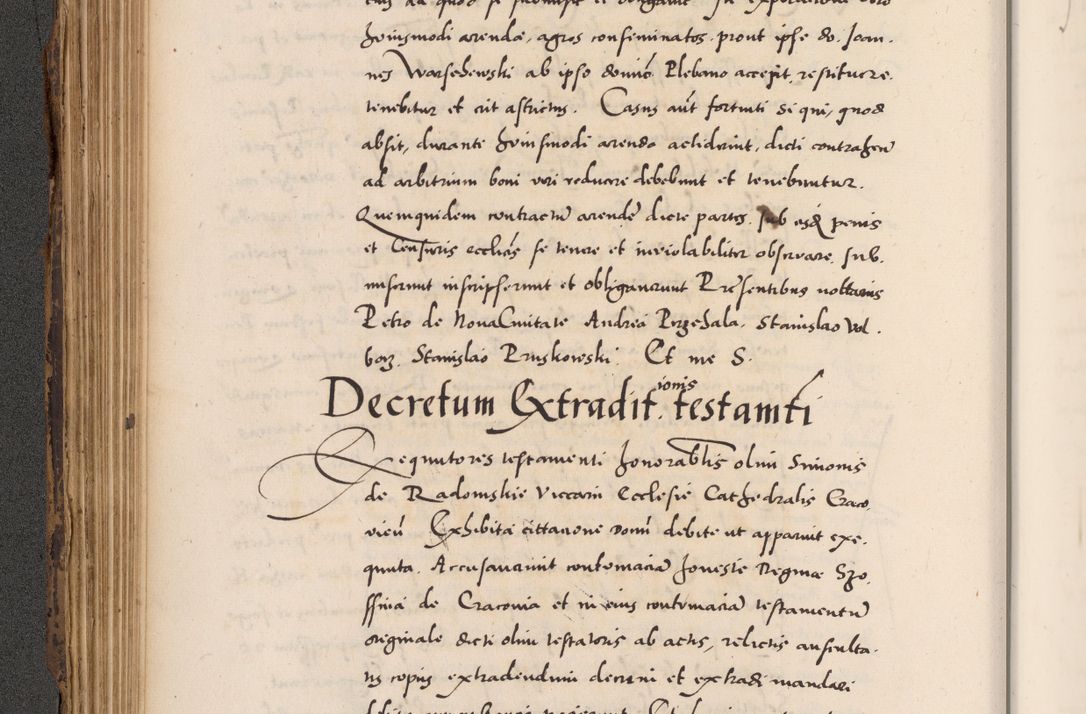 huiusmodi arendae, agros conseminatos, prout ipse do. Joan.
nes Warschewski ab ipso domiō Plebano accepit, restituere.
tenebitur et erit astrictus. Casus aūt fortuiti si qui, quod
absit, durante huiusmodi arenda acciderint, dicti contrahen̄
ad arbitrium boni viri reducere debebunt et tenebuntur.
Quemquidem contractū arende dicte partes, sub eisdē penis
et Censuris eccliās se tenere et inviolabiliter observare, sub.
miserunt inscripserunt et obligaverunt Prēsentibus nottariis
Petro de Nova Civitate Andrea Przehala, Stanislao Vol.
borz, Stanislao Pruskowski Et me S.
Decretum Extradit.ionis testamti
Exequutores testamenti honorablis olim Simonis
de Radomskie viccarii Ecclesie Cathedralis Craco.
vien̄ Exhibita cittatione Domī debite ut apparuit exe.
quuta. Accusaverunt contumaciā honeste Regine Szo.
ssina de Cracovia et in eius contumaciā testamentū
originale dicti olim testatoris ab actis, relictis ausculta.
tis copiis extradendum decerni et extradi mandari